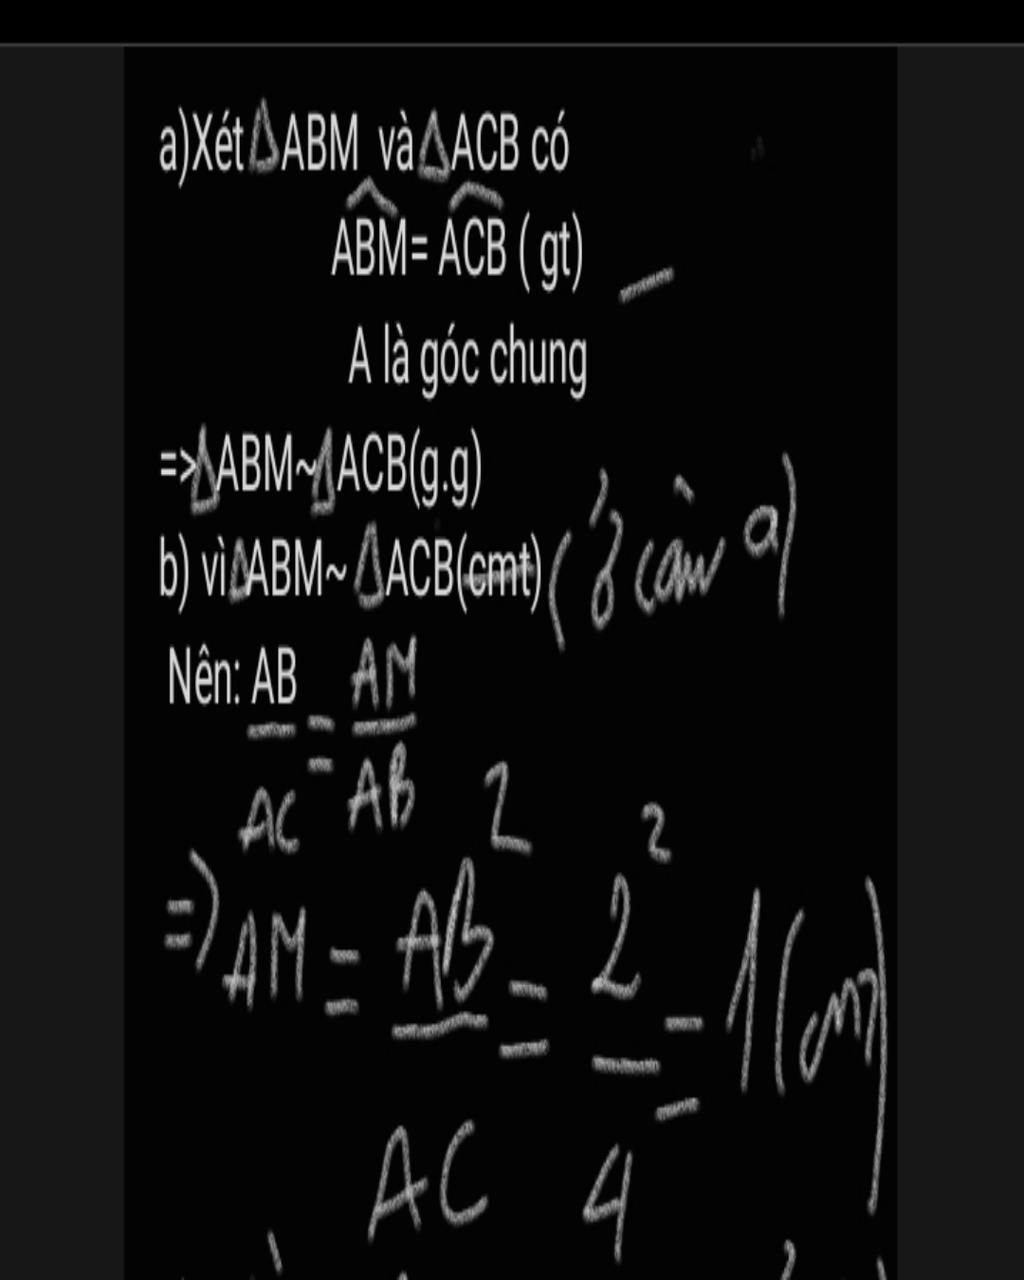 a)Xét Δ ABM và Δ ACB có
ABM= ACB ( gt)
A là góc chung
=> Δ ABM~ Δ ACB(g.g)
b) vì Δ ABM~ Δ ACB(cmt) (ở câu a)
Nên: AB/AC = AM/AB
=> AM = AB²/AC = 2²/4 = 1 (cm)